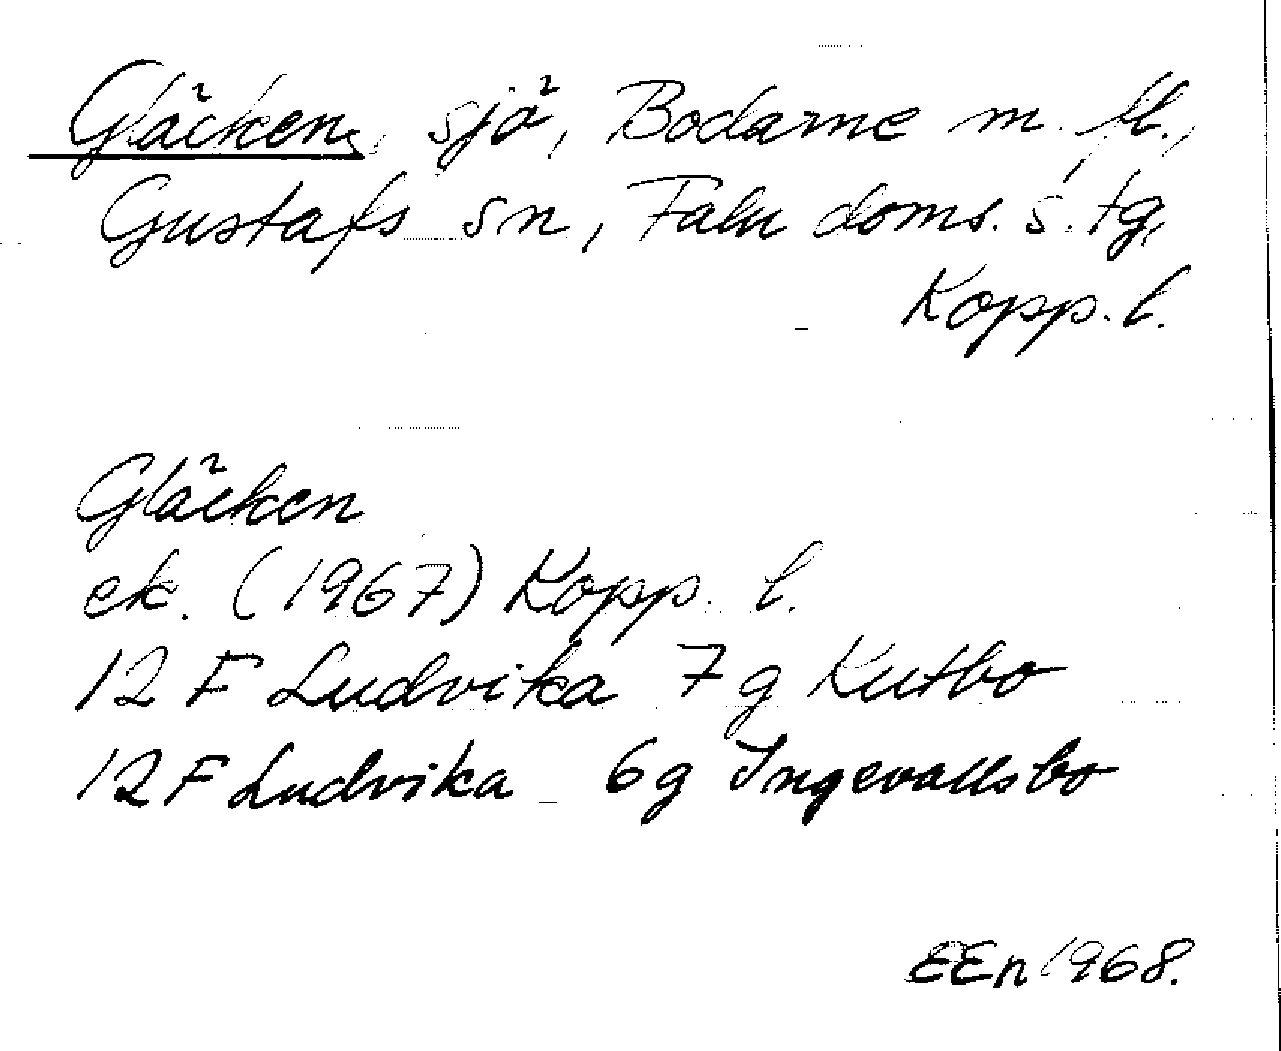 Gläcken, sjö, Bodarne m. fl.,
Gustafs sn, Falu doms. s. tg,
Kopp. l.
Gläcken
ek. (1967) Kopp. l.
12 F Ludvika 7g Kutbo
12 F Ludvika 6g Ingevallsbo
EEn 1968.